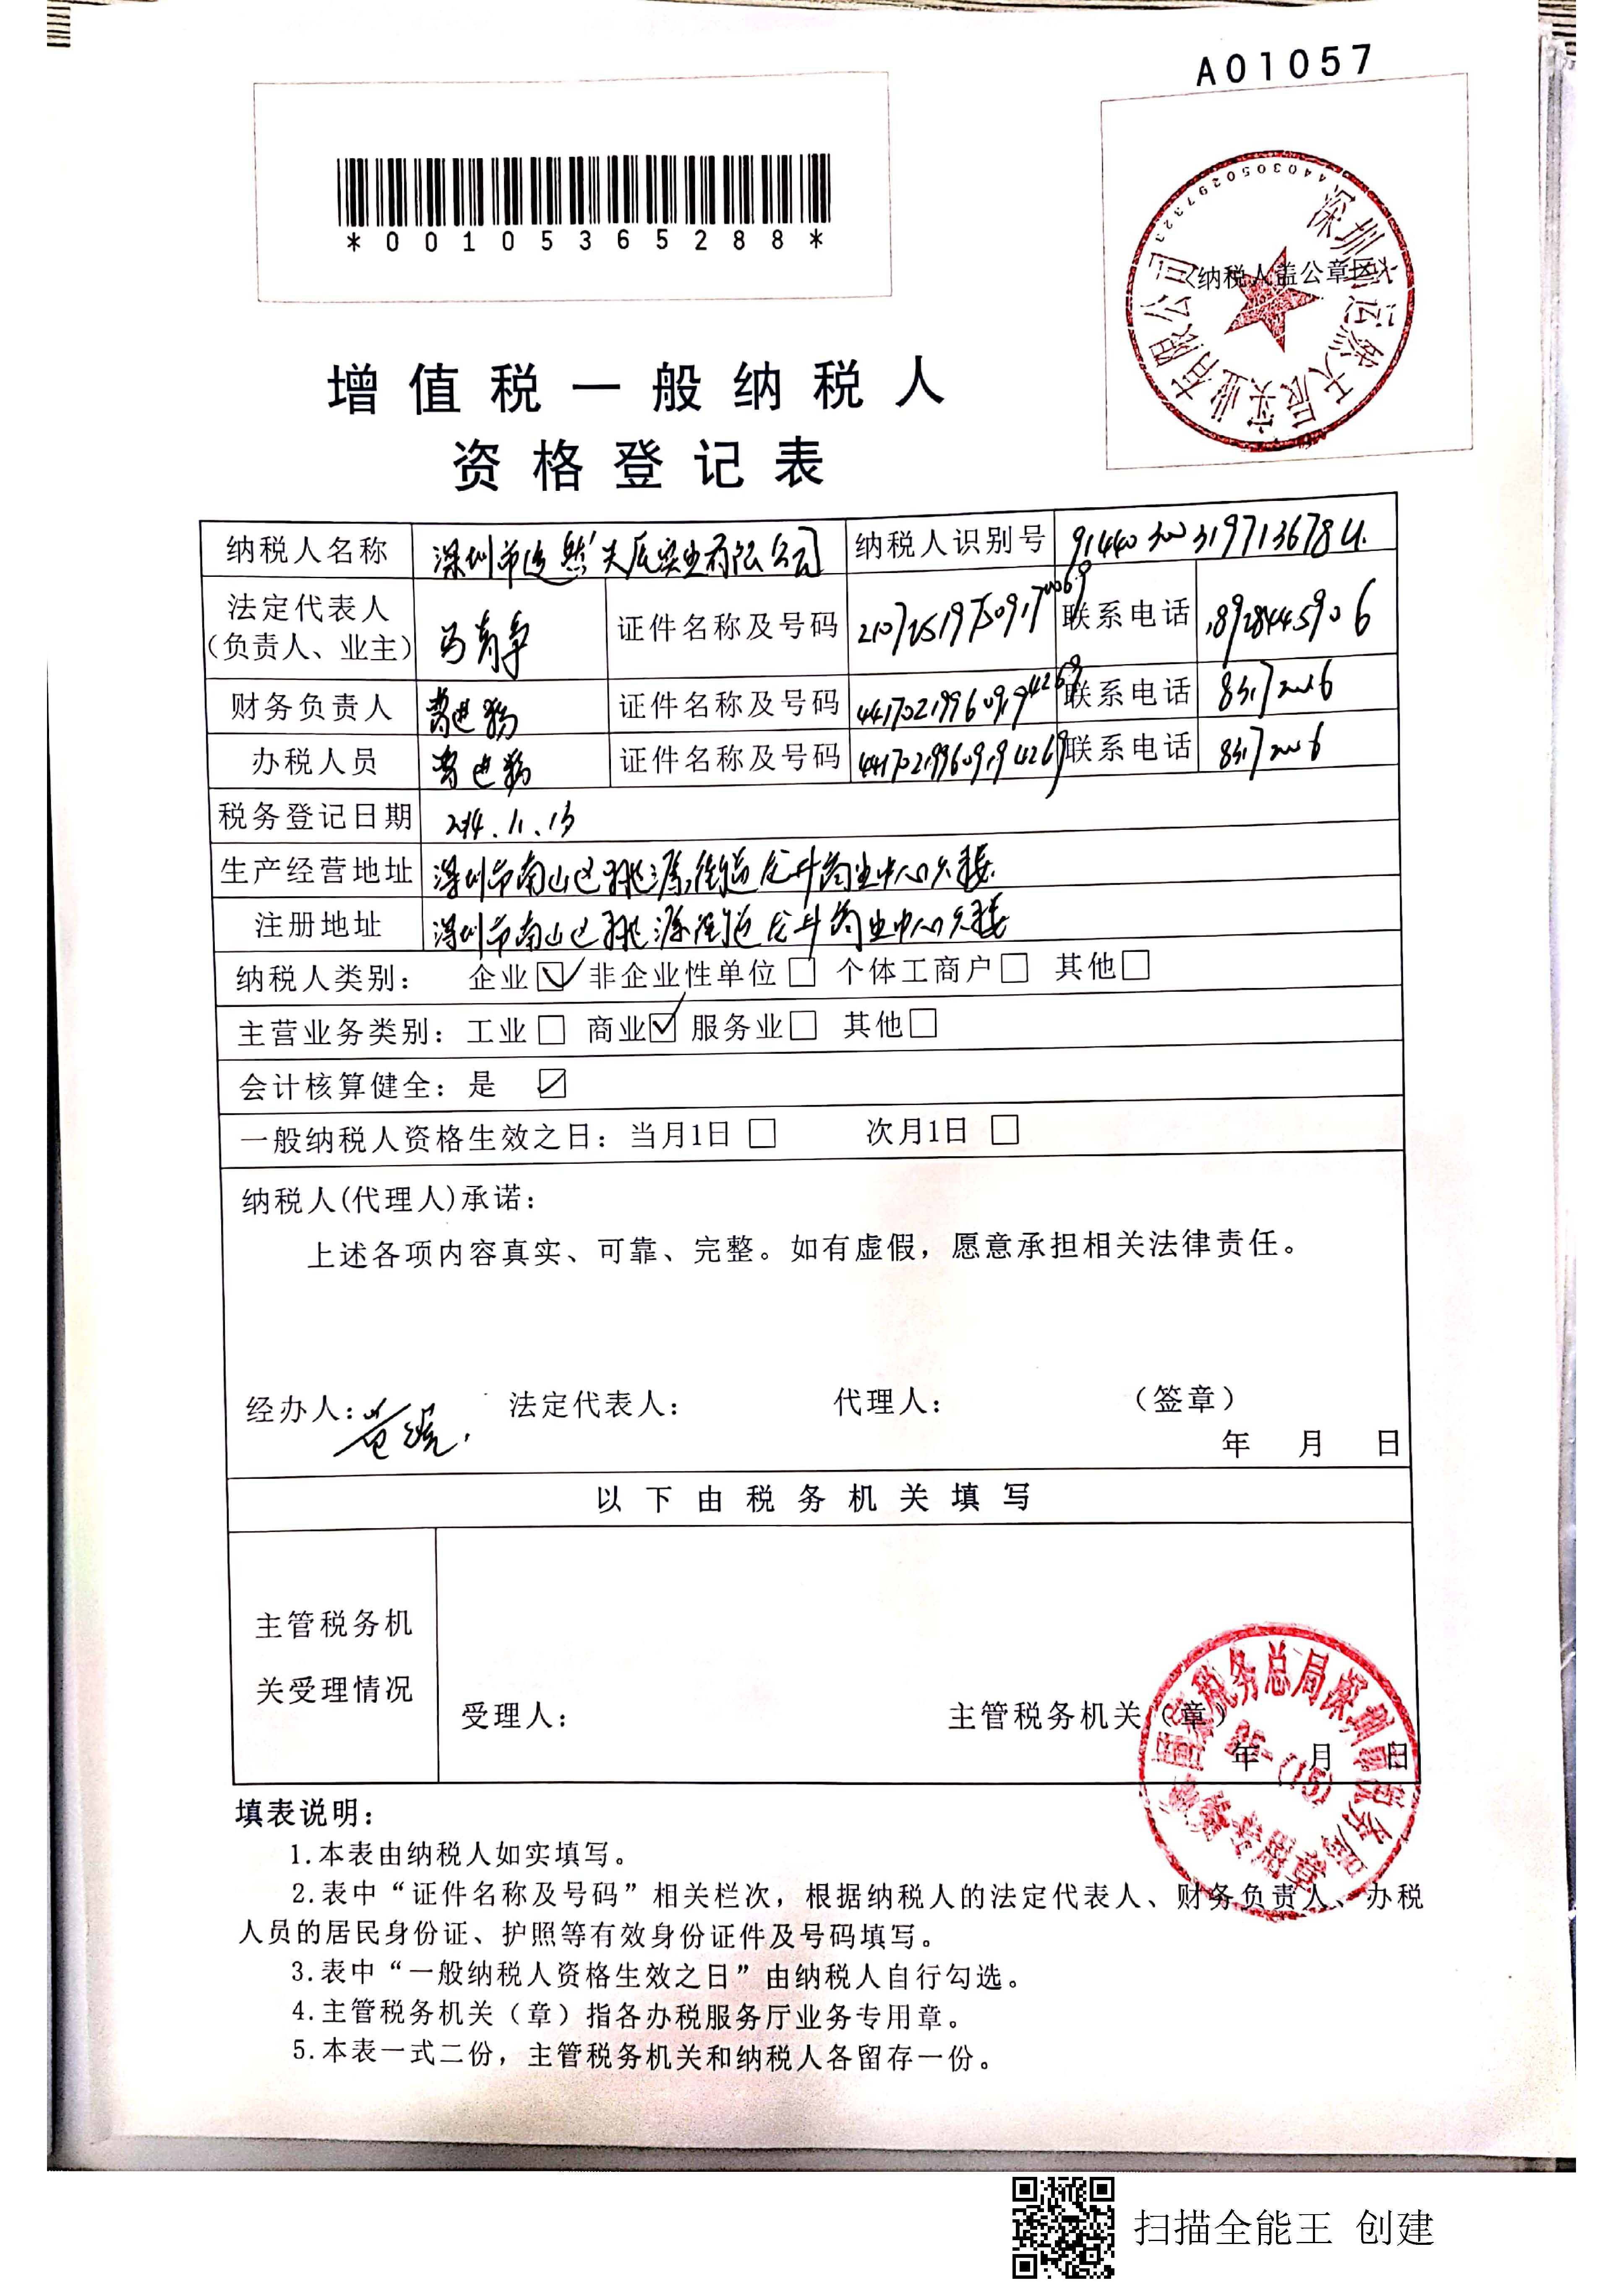 A01057
*00105365288*
4403050297323
(纳税人盖公章区)
增值税一般纳税人
资格登记表
纳税人名称 深圳市 实业有限公司 纳税人识别号
法定代表人
(负责人、业主) 证件名称及号码 联系电话 18928445906
财务负责人 证件名称及号码 441702199609194269 联系电话
办税人员 证件名称及号码 441702199609194269 联系电话
税务登记日期 2014.11.13
生产经营地址 深圳市南山区桃源街道龙井商业中心六楼
注册地址 深圳市南山区桃源街道龙井商业中心六楼
纳税人类别: 企业☑ 非企业性单位□ 个体工商户□ 其他□
主营业务类别: 工业□ 商业☑ 服务业□ 其他□
会计核算健全: 是 ☑
一般纳税人资格生效之日: 当月1日 □ 次月1日 □
纳税人(代理人)承诺:
上述各项内容真实、可靠、完整。如有虚假，愿意承担相关法律责任。
经办人: 法定代表人: 代理人: (签章)
年 月 日
以下由税务机关填写
主管税务机
关受理情况
受理人: 主管税务机关(章)
年 月 日
国家税务总局深圳市税务局
填表说明:
1.本表由纳税人如实填写。
2.表中“证件名称及号码”相关栏次，根据纳税人的法定代表人、财务负责人、办税
人员的居民身份证、护照等有效身份证件及号码填写。
3.表中“一般纳税人资格生效之日”由纳税人自行勾选。
4.主管税务机关（章）指各办税服务厅业务专用章。
5.本表一式二份，主管税务机关和纳税人各留存一份。
扫描全能王 创建